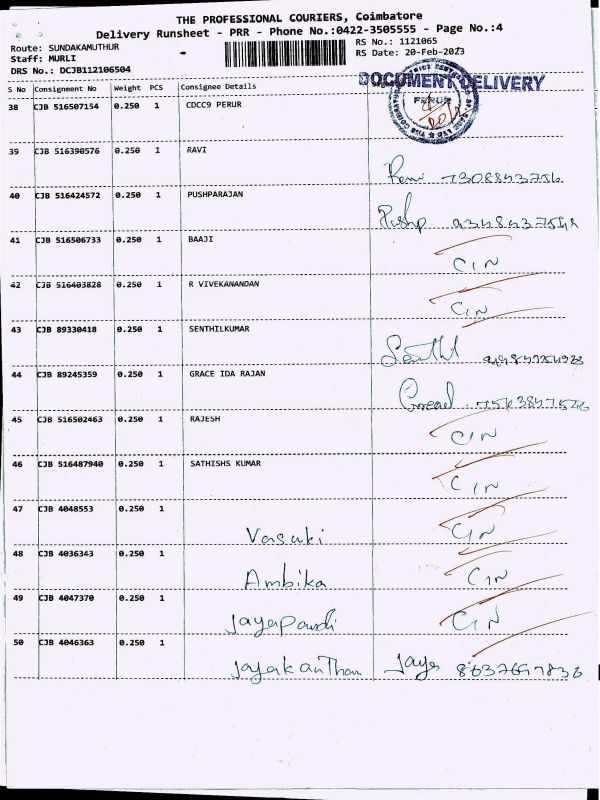 THE PROFESSIONAL COURIERS, Coimbatore
Delivery Runsheet - PRR - Phone No.:0422-3505555 - Page No.:4
Route: SUNDAKAMUTHUR
RS No.: 1121065
Staff: MURLI
RS Date: 20-Feb-2023
DRS No.: DCJB112106504
DOCUMENT DELIVERY
S No Consignment No Weight PCS Consignee Details
PERUR
38 CJB 516507154 0.250 1 CDCC9 PERUR
39 CJB 516390576 0.250 1 RAVI
40 CJB 516424572 0.250 1 PUSHPARAJAN
Pushp
41 CJB 516506733 0.250 1 BAAJI
CIN
42 CJB 516403828 0.250 1 R VIVEKANANDAN
CIN
43 CJB 89330418 0.250 1 SENTHILKUMAR
44 CJB 89245359 0.250 1 GRACE IDA RAJAN
45 CJB 516502463 0.250 1 RAJESH
CIN
46 CJB 516487940 0.250 1 SATHISHS KUMAR
CIN
47 CJB 4048553 0.250 1
Vasuki CIN
48 CJB 4036343 0.250 1
Ambika CIN
49 CJB 4047370 0.250 1
CIN
50 CJB 4046363 0.250 1
Jayakanthan Jaya